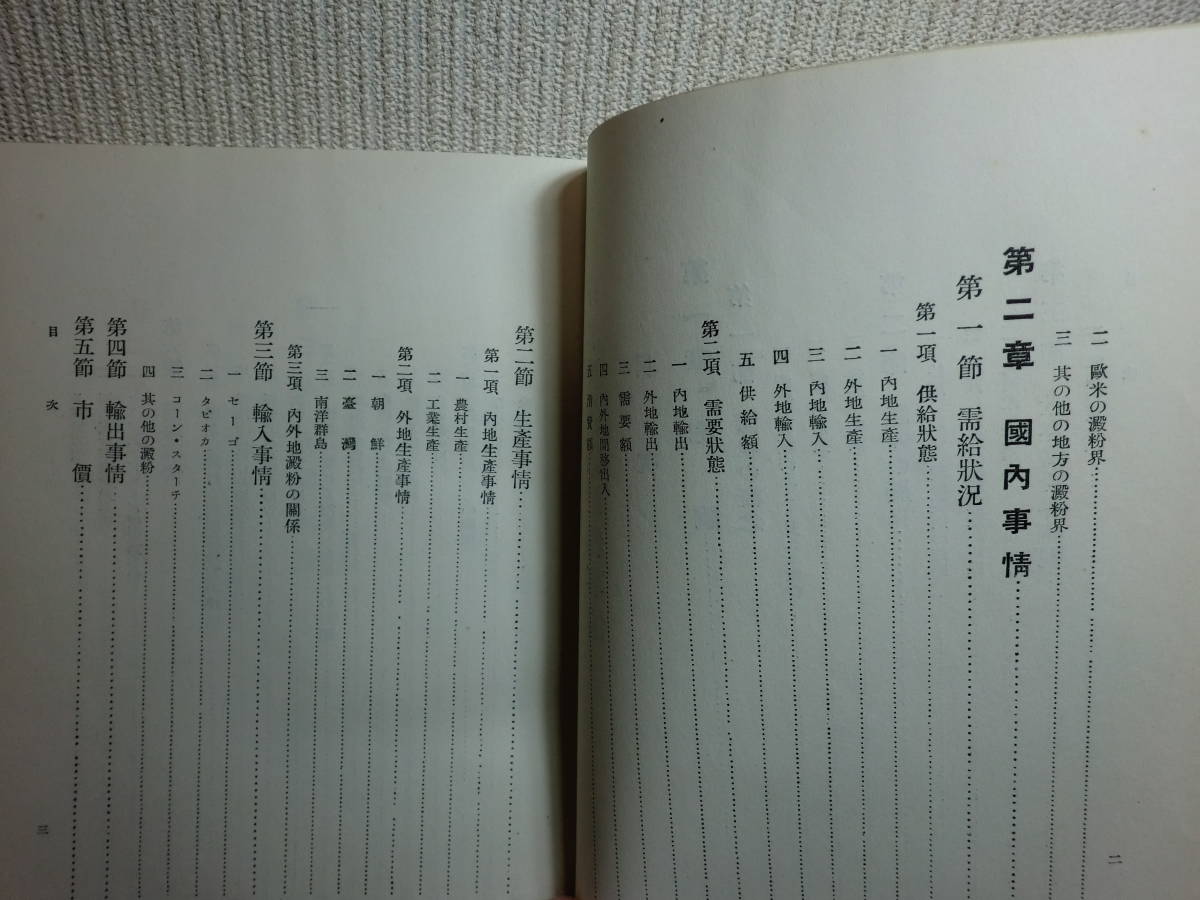 二 歐米の澱粉界
三 其の他の地方の澱粉界
第二章 國內事情
第一節 需給狀況
第一項 供給狀態
一 內地生產
二 外地生產
三 內地輸入
四 外地輸入
五 供給額
第二項 需要狀態
一 內地輸出
二 外地輸出
三 需要額
四 內外地間移出入
五 消費額
二
第二節 生產事情
第一項 內地生產事情
一 農村生產
二 工業生產
第二項 外地生產事情
一 朝鮮
二 臺灣
三 南洋群島
第三項 內外地澱粉の關係
第三節 輸入事情
一 セーゴ
二 タピオカ
三 コーン・スターチ
四 其の他の澱粉
第四節 輸出事情
第五節 市價
目次
三